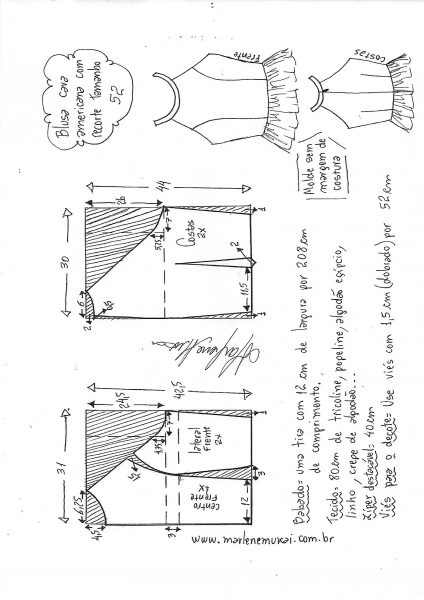 Blusa cava
americana com
recorte Tamanho
52
Frente
Costas
Molde sem
margem de
costura
30
6
2
26
44
7
Costas
2x
2
11,5
1
1
31
6,25
4,5
24,5
42,5
7
4,75
lateral
Frente
2x
centro
Frente
1x
12
3
3
1
Babado= uma tira com 12 cm de largura por 208cm
de comprimento.
Tecido= 80cm de tricoline, popeline, algodão egípcio,
linho, crepe de algodão...
Zíper destacável= 40cm
Viés para o decote= Use viés com 1,5cm (dobrado) por 52cm
www.marlenemukai.com.br